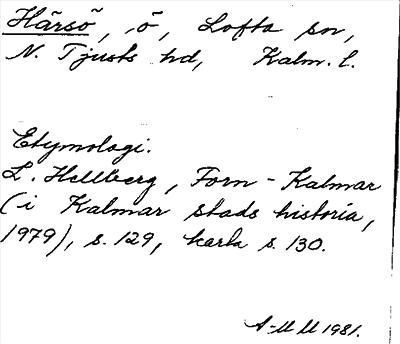 Härsö, ö, Lofta sn,
N. Tjusts hd, Kalm. l.
Etymologi.
L. Hellberg, Forn-Kalmar
(i Kalmar stads historia,
1979), s. 129, karta s. 130.
A-M M 1981.